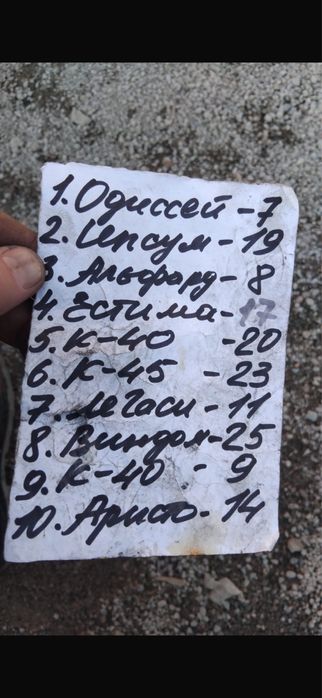 1. Одиссей - 7
2. Ипсум - 19
3. Альфард - 8
4. Естима - 17
5. К-40 - 20
6. К-45 - 23
7. Легаси - 11
8. Виндом - 25
9. К-40 - 9
10. Аристо - 14